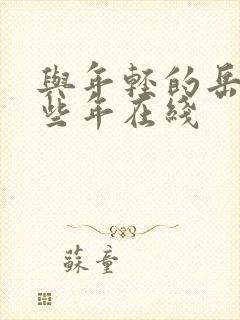 與年輕的岳
些年在綫
蘇童